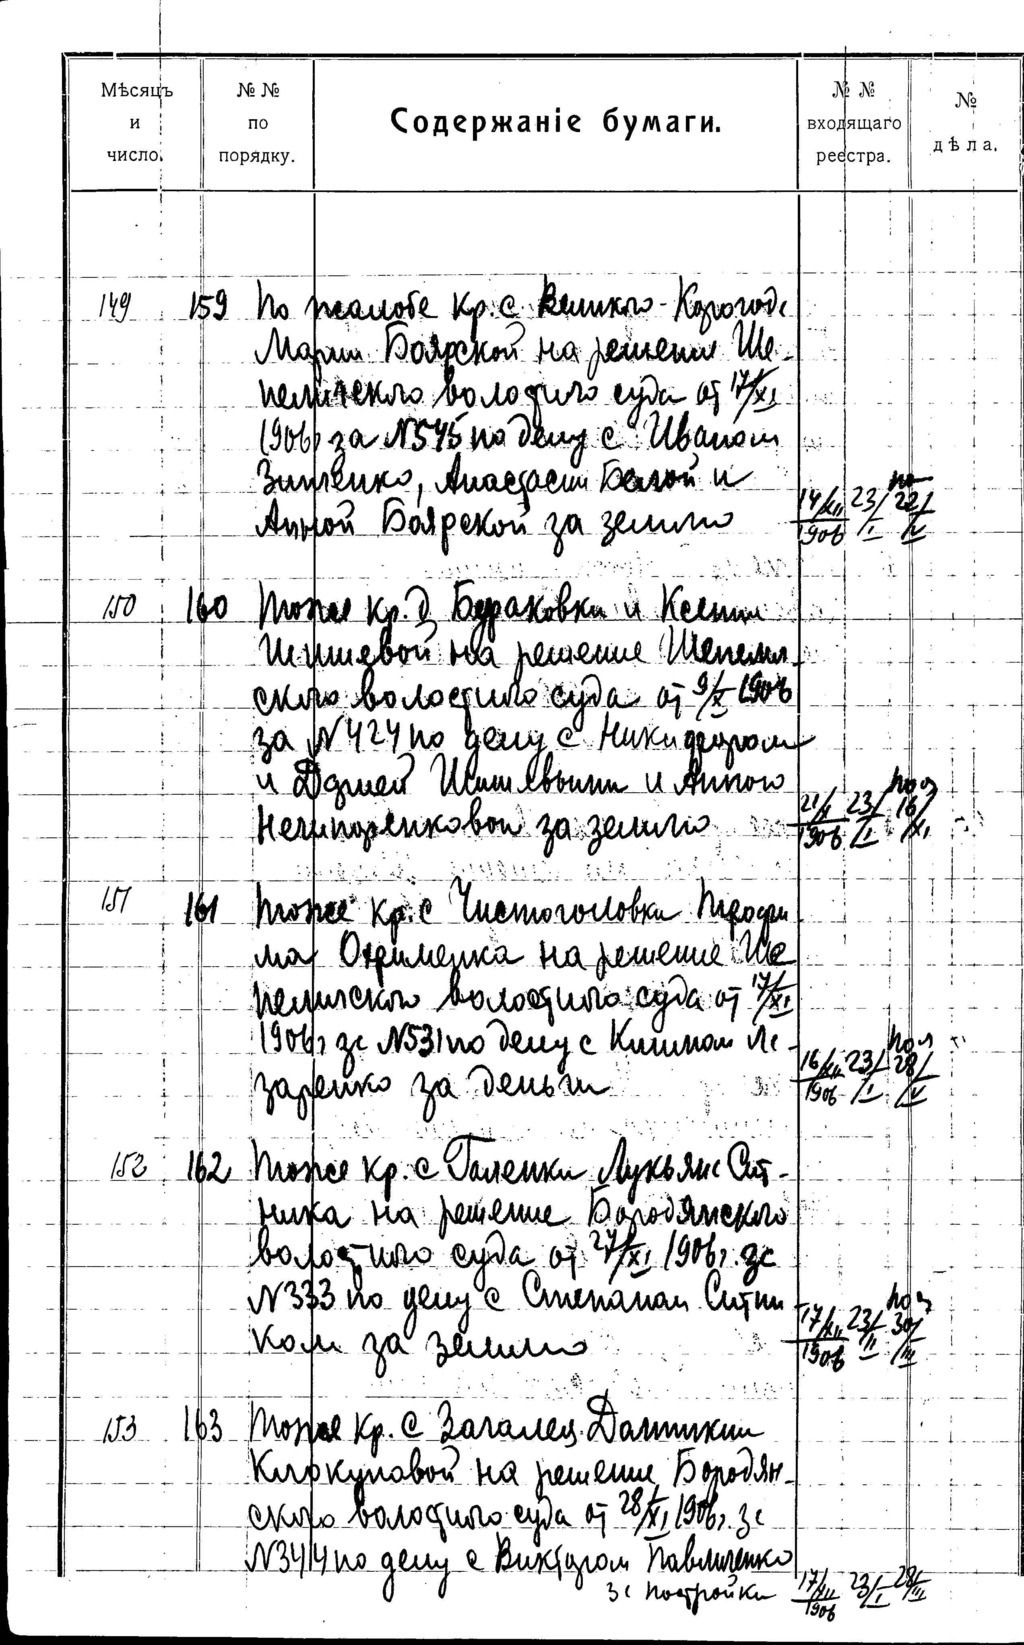 Мѣсяцъ и число.
№ № по порядку.
Содержаніе бумаги.
№ № входящаго реестра.
№ дѣла.
149 159 По жалобе кр. с. Великго-Корогода
Марии Боярской на решения Ше-
пеличского волостного суда от 17/XI
1906 г за №545 по делу с Иваном
Зинченко, Анастасии Белой и
Анной Боярской за землю 14/XII 1906 23/I 22/IV
150 160 Тоже кр. д. Бураковки и Ксении
Шишевой на решение Шепелич-
ского волостного суда от 9/X 1906
за №424 по делу с Никифором
и Дарией Шишевыми и Анною
Нечипоренковой за землю 21/X 1906 23/I 16/XI
151 161 Тоже кр. с Чистоголовки Трофи
ма Охрименка на решение Ше
пеличского волостного суда от 17/XI
1906 г за №531 по делу с Климом Ла-
заренко за деньги 16/XII 1906 23/I 28/V
152 162 Тоже кр. с Галенки Лукьяна Сит-
ника на решение Бородянского
волостного суда от 27/XI 1906 г. за
№333 по делу с Степаном Ситни
ком за землю 17/XII 1906 23/II 30/III
153 163 Тоже кр. с Загалец
на решение Бородян-
ского волостного суда от 28/XI 1906 г. за
№344 по делу с Виктором Павличенко
за постройки 17/XII 1906 23/I 28/III